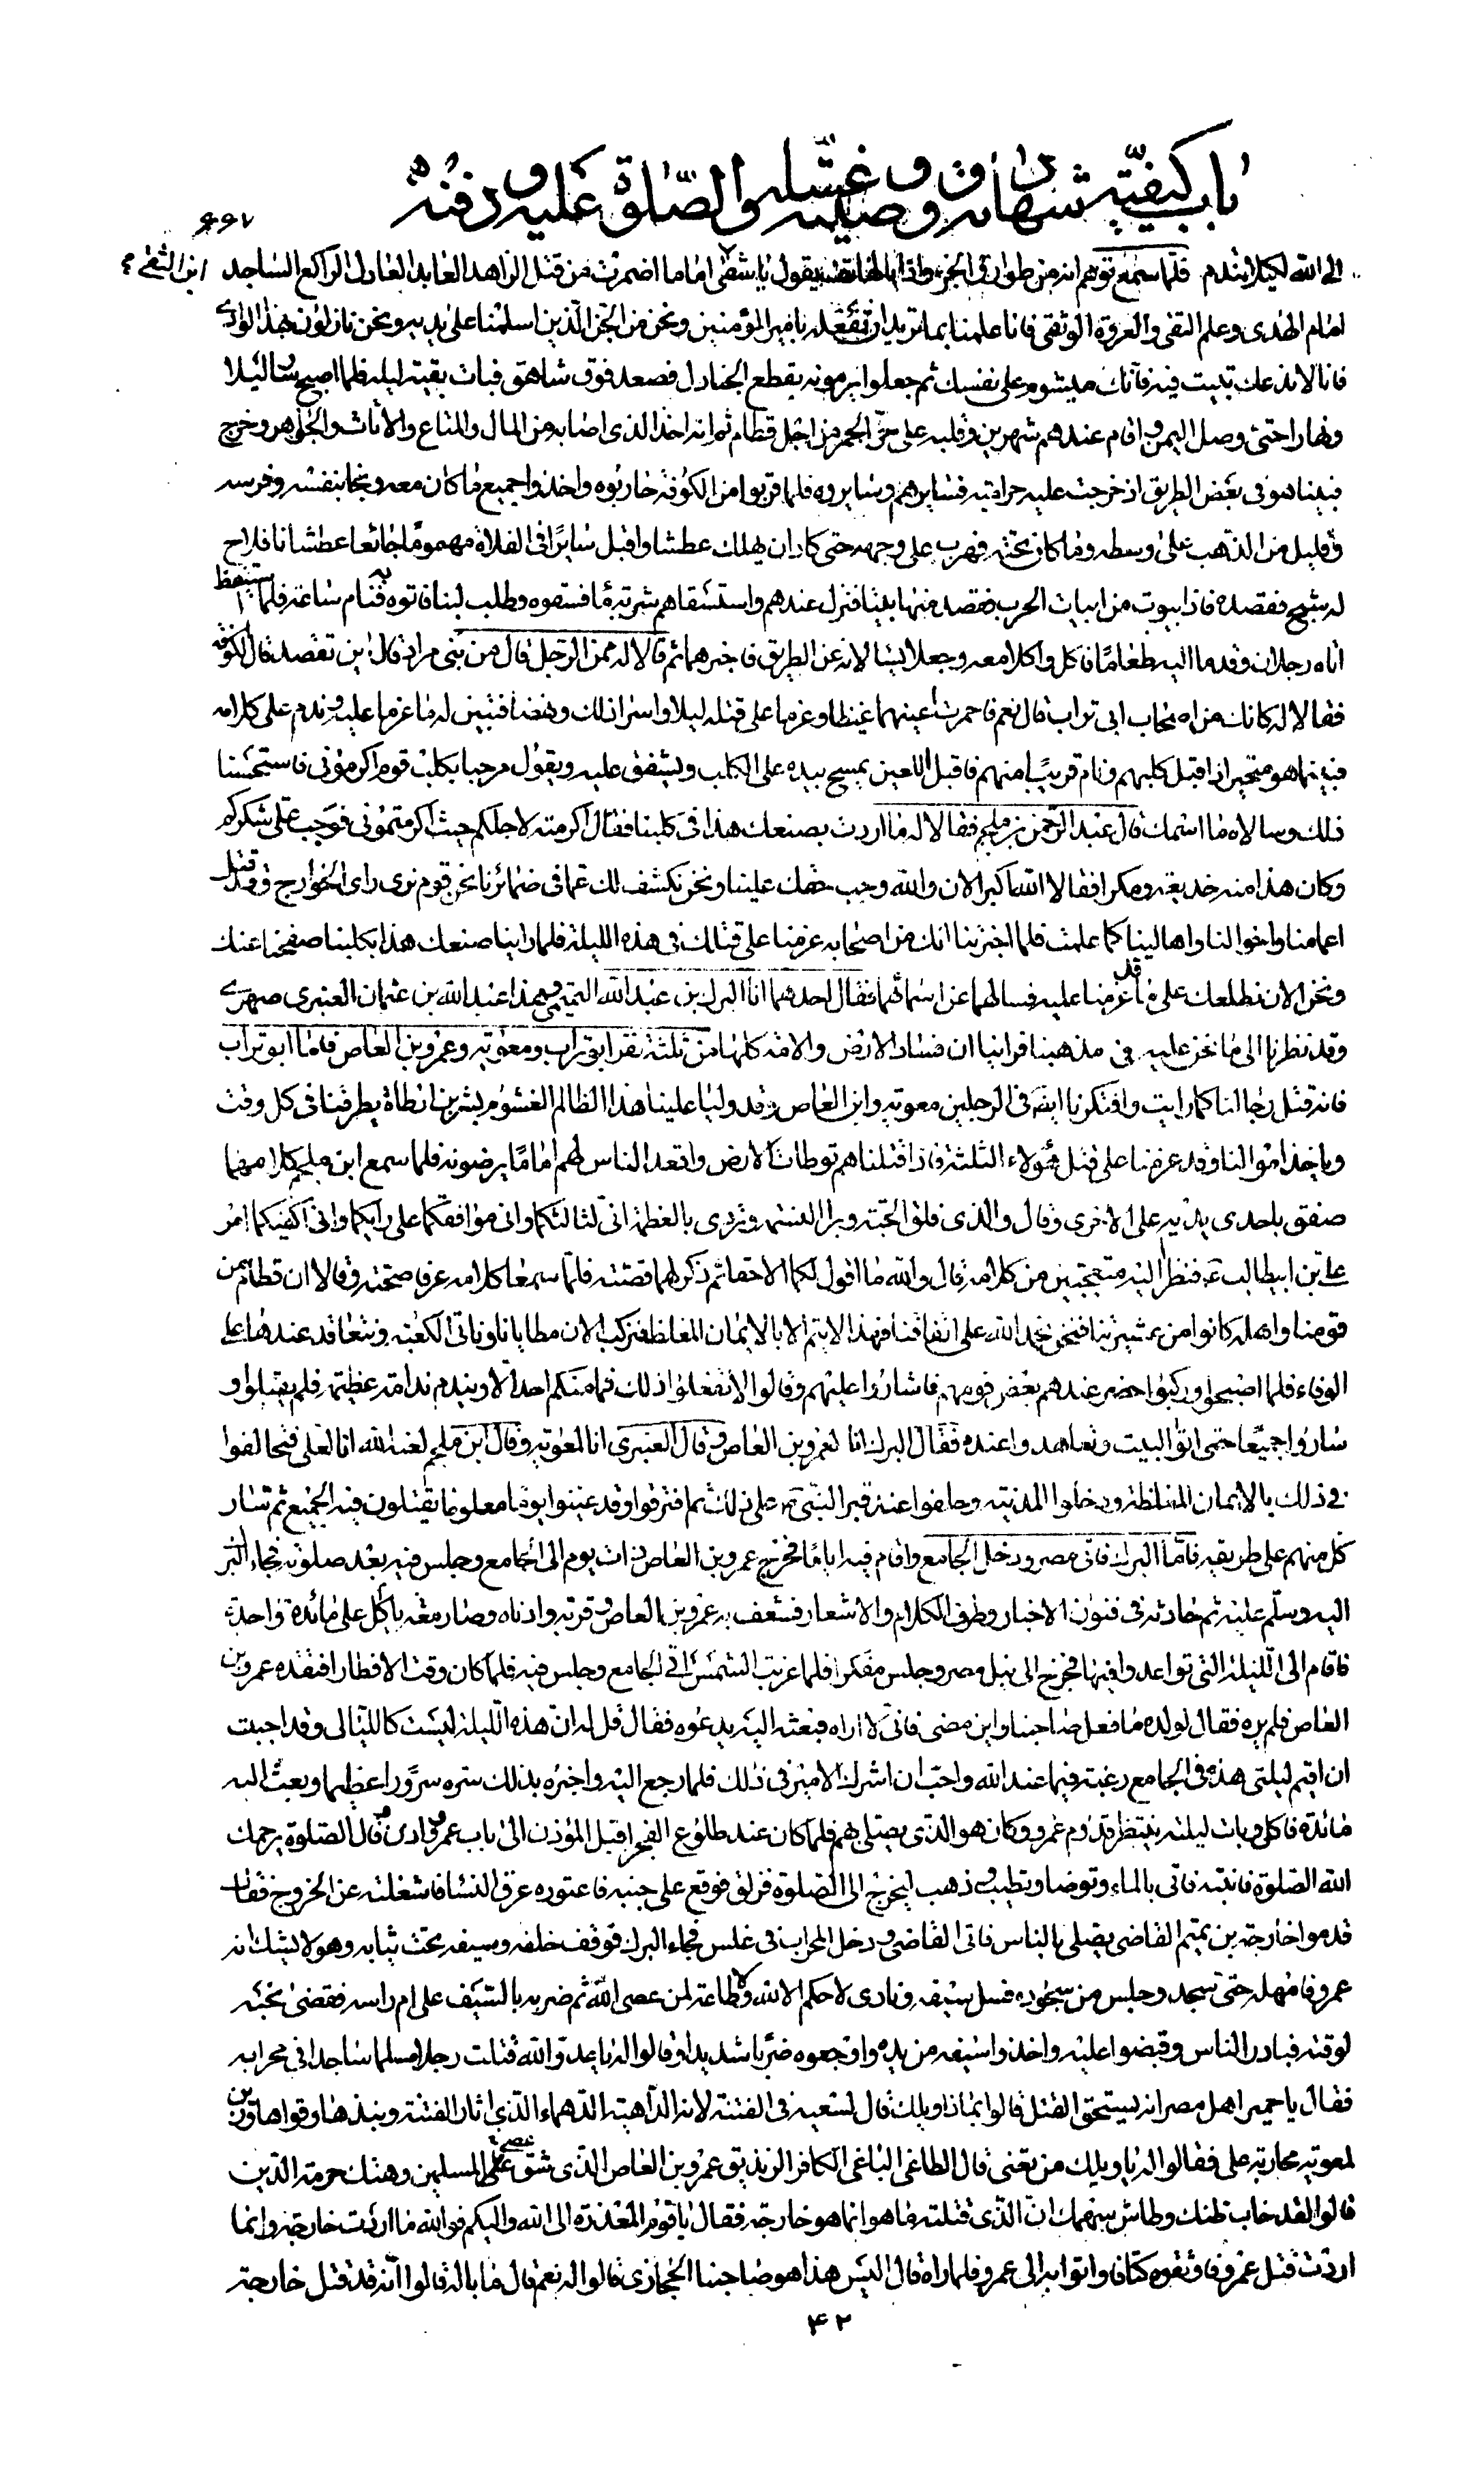 باب كيفية شهادته و وصيته و غسله والصلاة عليه و دفنه
٦٦٧
الى الله لكيلا يندم فلما سمع توهم انه من طوارق الجن واذا بالهاتف يقول يا شقى اما ما اضمرت من قتل الزاهد العابد العادل الراكع الساجد
امام الهدى وعلم التقى والعروة الوثقى فانا علمنا بما تريد ان تفعله بامير المؤمنين ونحن من الجن الذين اسلمنا على يديه ونحن نازلون بهذا الوادى
فانا لا ندعك تبيت فيه فانك ميشوم على نفسك ثم جعلوا يرمونه بقطع الجنادل فصعد فوق شاهق فبات بقية ليله فلما اصبح سار ليلا
ونهارا حتى وصل اليمن واقام عندهم شهرين وقلبه على حر الجمر من اجل قطام ثم انه اخذ الذى اصابه من المال والمتاع والاثاث والجواهر وخرج
فبينا هو فى بعض الطريق اذ خرجت عليه حرامية فسايرهم وسايروه فلما قربوا من الكوفة حاربوه واخذوا جميع ما كان معه ونجا بنفسه وفرسه
وقليل من الذهب على وسطه وما كان تحته فهرب على وجهه حتى كاد ان يهلك عطشا واقبل سايرا فى الفلاة مهموما جائعا عطشانا فلاح
له شبح فقصده فاذا بيوت من ابيات الحرب فقصد منها بيتا فنزل عندهم واستسقاهم شربة ماء فسقوه وطلب لبنا فاتوه به فنام ساعة فلما استيقظ
اتاه رجلان وقدما اليه طعاما فاكل واكلا معه وجعلا يسالانه عن الطريق فاخبرهما ثم قالا له ممن الرجل قال من بنى مراد قال اين تقصد قال الكوفة
فقالا له كانك من اصحاب ابى تراب قال نعم فاحمرت اعينهما غيظا وعزما على قتله ليلا واسرا ذلك ونهضا فتبين له ما عزما عليه وندم على كلامه
فبينما هو متحير اذ اقبل كلبهم ونام قريبا منهم فاقبل اللعين يمسح بيده على الكلب ويشفق عليه ويقول مرحبا بكلب قوم اكرمونى فاستحسنا
ذلك وسالاه ما اسمك قال عبد الرحمن بن ملجم فقالا له ما اردت بصنعك هذا فى كلبنا فقال اكرمته لاجلكم حيث اكرمتمونى فوجب على شكركم
وكان هذا منه خديعة ومكرا فقالا الله اكبر الان والله وجب حقك علينا ونحن نكشف لك عما فى ضمائرنا نحن قوم نرى راى الخوارج وقد قتل
اعمامنا واخوالنا واهالينا كما علمت فلما اخبرتنا انك من اصحابه عزمنا على قتلك فى هذه الليلة فلما راينا صنعك هذا بكلبنا صفحنا عنك
ونحن الان نطلعك على ما قد عزمنا عليه فسالهما عن اسمائهما فقال احدهما انا البرك بن عبد الله التميمى وهذا عبد الله بن عثمان العنبرى صهرى
وقد نظرنا الى ما نحن عليه فى مذهبنا فراينا ان فساد الارض والامة كلها من ثلثة نفر ابو تراب ومعوية وعمرو بن العاص فاما ابو تراب
فانه قتل رجالنا كما رايت وافتكرنا ايضا فى الرجلين معوية وابن العاص وقد وليا علينا هذا الظالم الغشوم بشر بن ارطاة يطرقنا فى كل وقت
وياخذ اموالنا وقد عزمنا على قتل هؤلاء الثلثة فاذا قتلناهم توطات الارض واقعد الناس لهم اماما يرضونه فلما سمع ابن ملجم كلامهما
صفق باحدى يديه على الاخرى وقال والذى فلق الحبة وبرا النسمة وتردى بالعظمة انى لثالثكما وانى موافقكما على رايكما وانى اكفيكما امر
على بن ابيطالب ع فنظرا اليه متعجبين من كلامه قال والله ما اقول لكما الا حقا ثم ذكر لهما قصته فلما سمعا كلامه عرفا صحته وقالا ان قطام من
قومنا واهلها كانوا من عشيرتنا فنحن نحمد الله على اتفاقنا فهذا لا يتم الا بالايمان المغلظة فنركب الان مطايانا وناتى الكعبة ونتعاقد عندها على
الوفاء فلما اصبحوا وركبوا حضر عندهم بعض قومهم فاشاروا عليهم وقالوا لا تفعلوا ذلك فما منكم احد الا ويندم ندامة عظيمة فلم يقبلوا و
ساروا جميعا حتى اتوا البيت وتعاهدوا عنده فقال البرك انا لعمرو بن العاص وقال العنبرى انا لمعوية وقال ابن ملجم لعنه الله انا لعلى فتحالفوا
فى ذلك بالايمان المغلظة ودخلوا المدينة وحلفوا عند قبر النبى ص على ذلك ثم افترقوا وقد عينوا يوما معلوما يقتلون فيه الجميع ثم سار
كل منهم على طريقه فاما البرك فاتى مصر ودخل الجامع واقام فيه اياما فخرج عمرو بن العاص ذات يوم الى الجامع وجلس فيه بعد صلوته فجاء البرك
اليه وسلم عليه ثم حادثه فى فنون الاخبار وطرف الكلام والاشعار فشعف به عمرو بن العاص وقربه وادناه وصار معه ياكل على مائدة واحدة
فاقام الى الليلة التى تواعدوا فيها فخرج الى نيل مصر وجلس مفكرا فلما غربت الشمس اتى الجامع وجلس فيه فلما كان وقت الافطار افتقده عمرو بن
العاص فلم يره فقال لولده ما فعل صاحبنا واين مضى فانى لا اراه فبعثه اليه يدعوه فقال قل له ان هذه الليلة ليست كالليالى وقد احببت
ان اقيم ليلتى هذه فى الجامع رغبة فيما عند الله واحب ان اشرك الامير فى ذلك فلما رجع اليه واخبره بذلك سره سرورا عظيما وبعث اليه
مائدة فاكل وبات ليلته ينتظر قدوم عمرو وكان هو الذى يصلى بهم فلما كان عند طلوع الفجر اقبل المؤذن الى باب عمرو واذن وقال الصلوة يرحمك
الله الصلوة فانتبه فاتى بالماء وتوضا وتطيب وذهب ليخرج الى الصلوة فزلق فوقع على جنبه فاعتوره عرق النسا فاشغلته عن الخروج فقال
قدموا خارجة بن تميم القاضى يصلى بالناس فاتى القاضى ودخل المحراب فى غلس فجاء البرك فوقف خلفه وسيفه تحت ثيابه وهو لا يشك انه
عمرو فامهله حتى سجد وجلس من سجوده فسل سيفه ونادى لا حكم الا لله ولا طاعة لمن عصى الله ثم ضربه بالسيف على ام راسه فقضى نحبه
لوقته فبادر الناس وقبضوا عليه واخذوا سيفه من يده واوجعوه ضربا شديدا وقالوا له يا عدو الله قتلت رجلا مسلما ساجدا فى محرابه
فقال يا حمير اهل مصر انه يستحق القتل قالوا بماذا ويلك قال لسعيه فى الفتنة لانه الداهية الدهماء الذى اثار الفتنة ونبذها وقواها وزين
لمعوية محاربة على فقالوا له يا ويلك من تعنى قال الطاغى الباغى الكافر الزنديق عمرو بن العاص الذى شق عصى المسلمين وهتك حرمة الدين
قالوا لقد خاب ظنك وطاش سهمك ان الذى قتلته ما هو انما هو خارجة فقال يا قوم المعذرة الى الله واليكم فوالله ما اردت خارجة وانما
اردت قتل عمرو فاوثقوه كتافا واتوا به الى عمرو فلما راه قال اليس هذا هو صاحبنا الحجازى قالوا له نعم قال ما باله قالوا انه قد قتل خارجة
٤٢